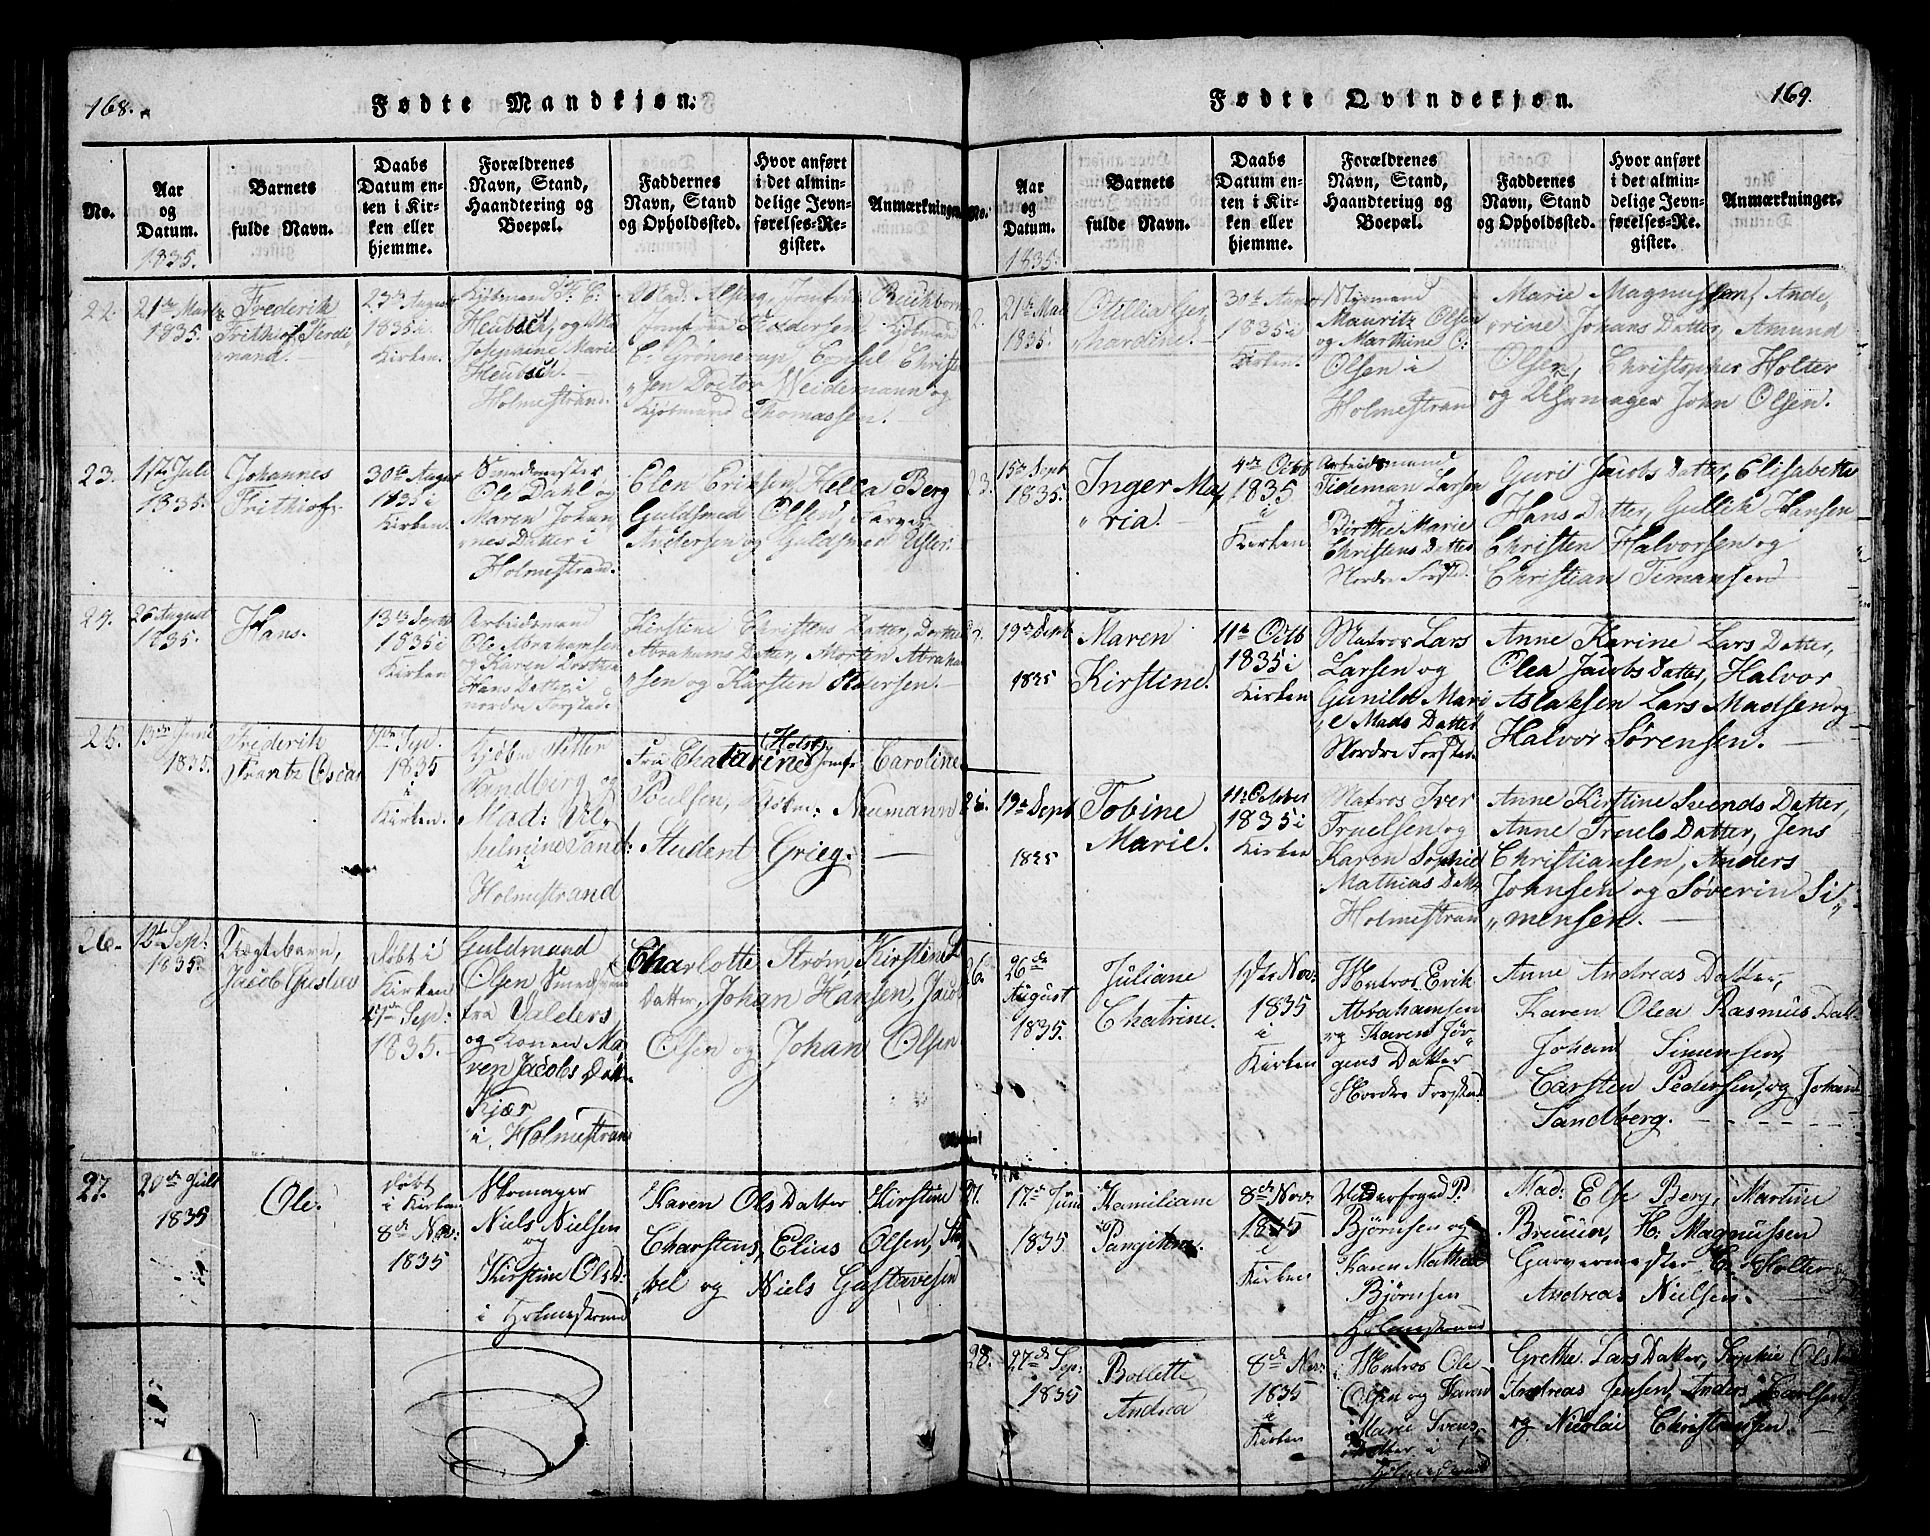 168.
Fødte Mandkjøn.
No.
Aar
og
Datum.
1835.
Barnets
fulde Navn.
Daabs
Datum en-
ten i Kir-
ken eller
hjemme.
Forældrenes
Navn, Stand,
Haandtering og
Boepæl.
Faddernes
Navn, Stand
og Opholdssted.
Hvor anført
i det almin-
delige Jevn-
førelses-Re-
gister.
Anmærkninger
22.
21de
1835.
Frederik
Frithiof Ferdi-
nand.
23de
1835 i
Kirken.
Kjøbmand
Heubsch, og
Josephine Marie
Heubsch.
Holmestrand.
Mad: Alsing, Jomfrue Buchborn
Jomfrue Foldersen, Kjøbmand
C. Grønnerup, Christen
"sen Doctor Weidemann og
Kjøbmand Thomassen.
23.
17de Juli
1835.
Johannes
Frithiof
30te August
1835 i
Kirken.
Smedmester
Ole Dahl og
Maren Johan
"nes Datter i
Holmestrand.
Elen Eriksen, Hella Berg
Guldsmed Olsen, Farver
Andersen og Guldsmed
24.
26 August
1835.
Hans.
13de Septb
1835 i
Kirken
Arbeidsmand
Ole Abrahamsen
og Karen Dorthea
Hans Datter i
nordre Forstad
Kirstine Christens Datter, Dorthea
Abrahams Datter, Morten Abraham
"sen og Karsten Pedersen.
25.
13de Juni
1835.
Frederik
Frantz Oscar
7de Sep.
1835
i
Kirken.
Kjøbm Peter
Sandberg og
Mad: Vil-
helmine Sand
i
Holmestrand
(Holst)
Fru Chatarine Jomfr Caroline
Poulsen, Kjøbm: Neumann
Student Grieg.
26.
12te Sep:
1835.
Uægte barn,
Jacob Gustav
Døbt i
Kirken
27de Sep:
1835.
Guldmand
Olsen
fra Valders
og Konen Ma-
ren Jacobs Datt
Kjær
i Holmestrand
Charlotte Strøm, Kirstine L
Datter, Johan Hansen, Jacob
Olsen og Johan Olsen
27.
20de Juli
1835
Ole.
Døbt
i Kirken
8de Nov:
1835
Skomager
Niels Nielsen
og
Kirstine Ols D:
i Holmestrand
Karen Ols Datter Kirstine
Charstens, Elias Olsen,
"bel og Niels Gustavesen
169.
Fødte Qvindekjøn.
No.
Aar
og
Datum.
1835.
Barnets
fulde Navn.
Daabs
Datum en-
ten i Kir-
ken eller
hjemme.
Forældrenes
Navn, Stand,
Haandteriug og
Boepæl.
Faddernes
Navn, Stand
og Opholdssted.
Hvor anført
i det almin-
delige Jevn-
førelses-Re-
gister.
Anmærkninger.
2.
21de Mai
1835.
Otillia Ger
"hardine.
30te
1835 i
Kirken.
Styrmand
Mauritz Olsen
og Marthine O.
Olsen i
Holmestrand
Marie Magnussen, Ande"
"rine Johans Datter, Amund
Olsen, Christopher Holter
og John Olsen.
23.
15de Septb
1835.
Inger Ma,
"ria.
4de Octb
1835
i
Kirken
Arbeidsmand
Tideman Larsen
og
Birthe Marie
Christens Datter
Nordre Forstad.
Guril Jacobs Datter, Elisabetha
Hans Datter, Gullich Hansen
Christen Halvorsen og
Christian Timansen
19de Septb
1835
Maren
Kirstine.
11te Octb
1835 i
Kirken
Matros Lars
Larsen og
Gunild Mari
"e Mads Datter
Nordre Forstad.
Anne Karine Lars Datter,
Olea Jacobs Datter, Halvor
Aslaksen Lars Madsen og
Halvor Sørensen.
25.
19de Septb
1835
Tobine
Marie.
11te October
1835 i
Kirken
Matros Iver
Truelsen og
Karen Sophie
Mathias Datt
Holmestrand
Anne Kirstine Svends Datter,
Anne Truels Datter, Jens
Christiansen, Anders
Johnsen og Søverin Si"
"mensen.
26.
26de
August
1835.
Juliane
Chatrine.
1ste Nov:
1835
i
Kirken
Matros Erik
Abrahamsen
og Karen Jør-
gens Datter
Nordre Forstad
Anne Andreas Datter,
Karen Olea Rasmus Datt
Johan Simensen,
Carsten Pedersen, og Johan
Sandberg.
27.
17de Juni
1835
Kamiliam
8de Nov:
1835
i
Kirken
Underfoged P.
Bjørnsen og
Karen Mathea
Bjørnsen
Holmestrand
Mad: Else Berg, Martine
Breuün, H: Magnussen
Garvermester C. Holter og
Andreas Nielsen.
28.
27de Sep:
1835
Bollette
Andrea
8de Nov:
1835
i
Kirken
Matros Ole
Olsen og Karen
Marie Svens,
Datter i
Holmestrand
Grethe Lars Datter, Sophie Ols D
Andreas Jensen, Anders Carlsen
og Nicolai Christansen.